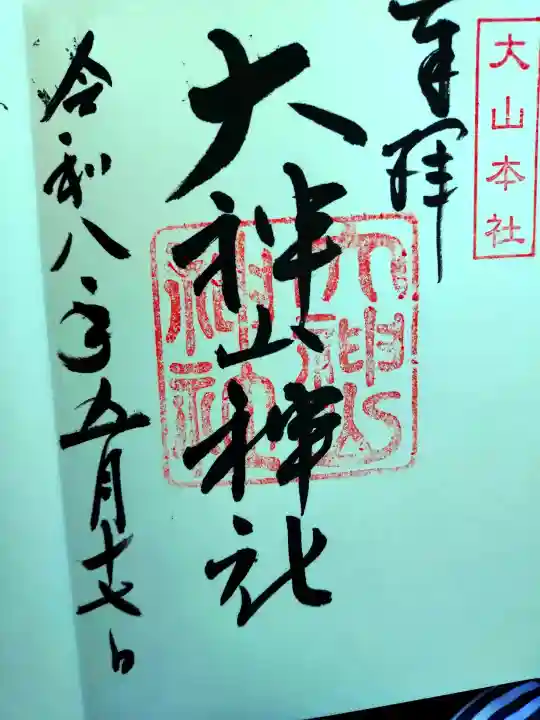 大山本社
奉拝
大神山神社
大神山神社
令和八年五月十七日